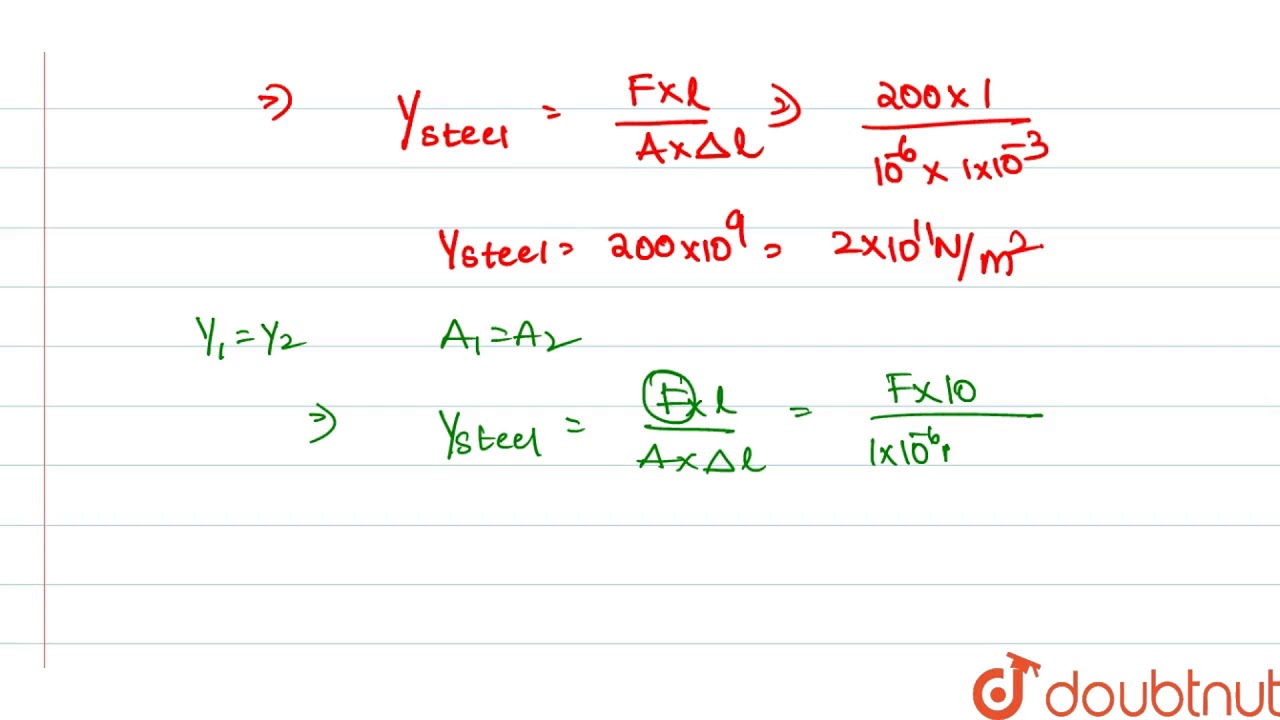 ⇒ Ysteel = F×l / A×Δl ⇒ 200×1 / 10^-6 × 1×10^-3
Ysteel = 200×10^9 = 2×10^11 N/m^2
Y1=Y2 A1=A2
⇒ Ysteel = F×l / A×Δl = F×10 / 1×10^-6
doubtnut